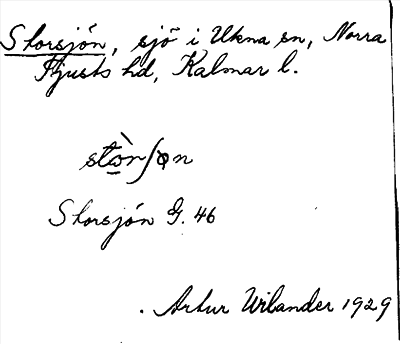 Storsjön, sjö i Ukna sn, Norra
Tjusts hd, Kalmar l.
stò̤nʃɷn
Storsjön G. 46
Artur Wilander 1929